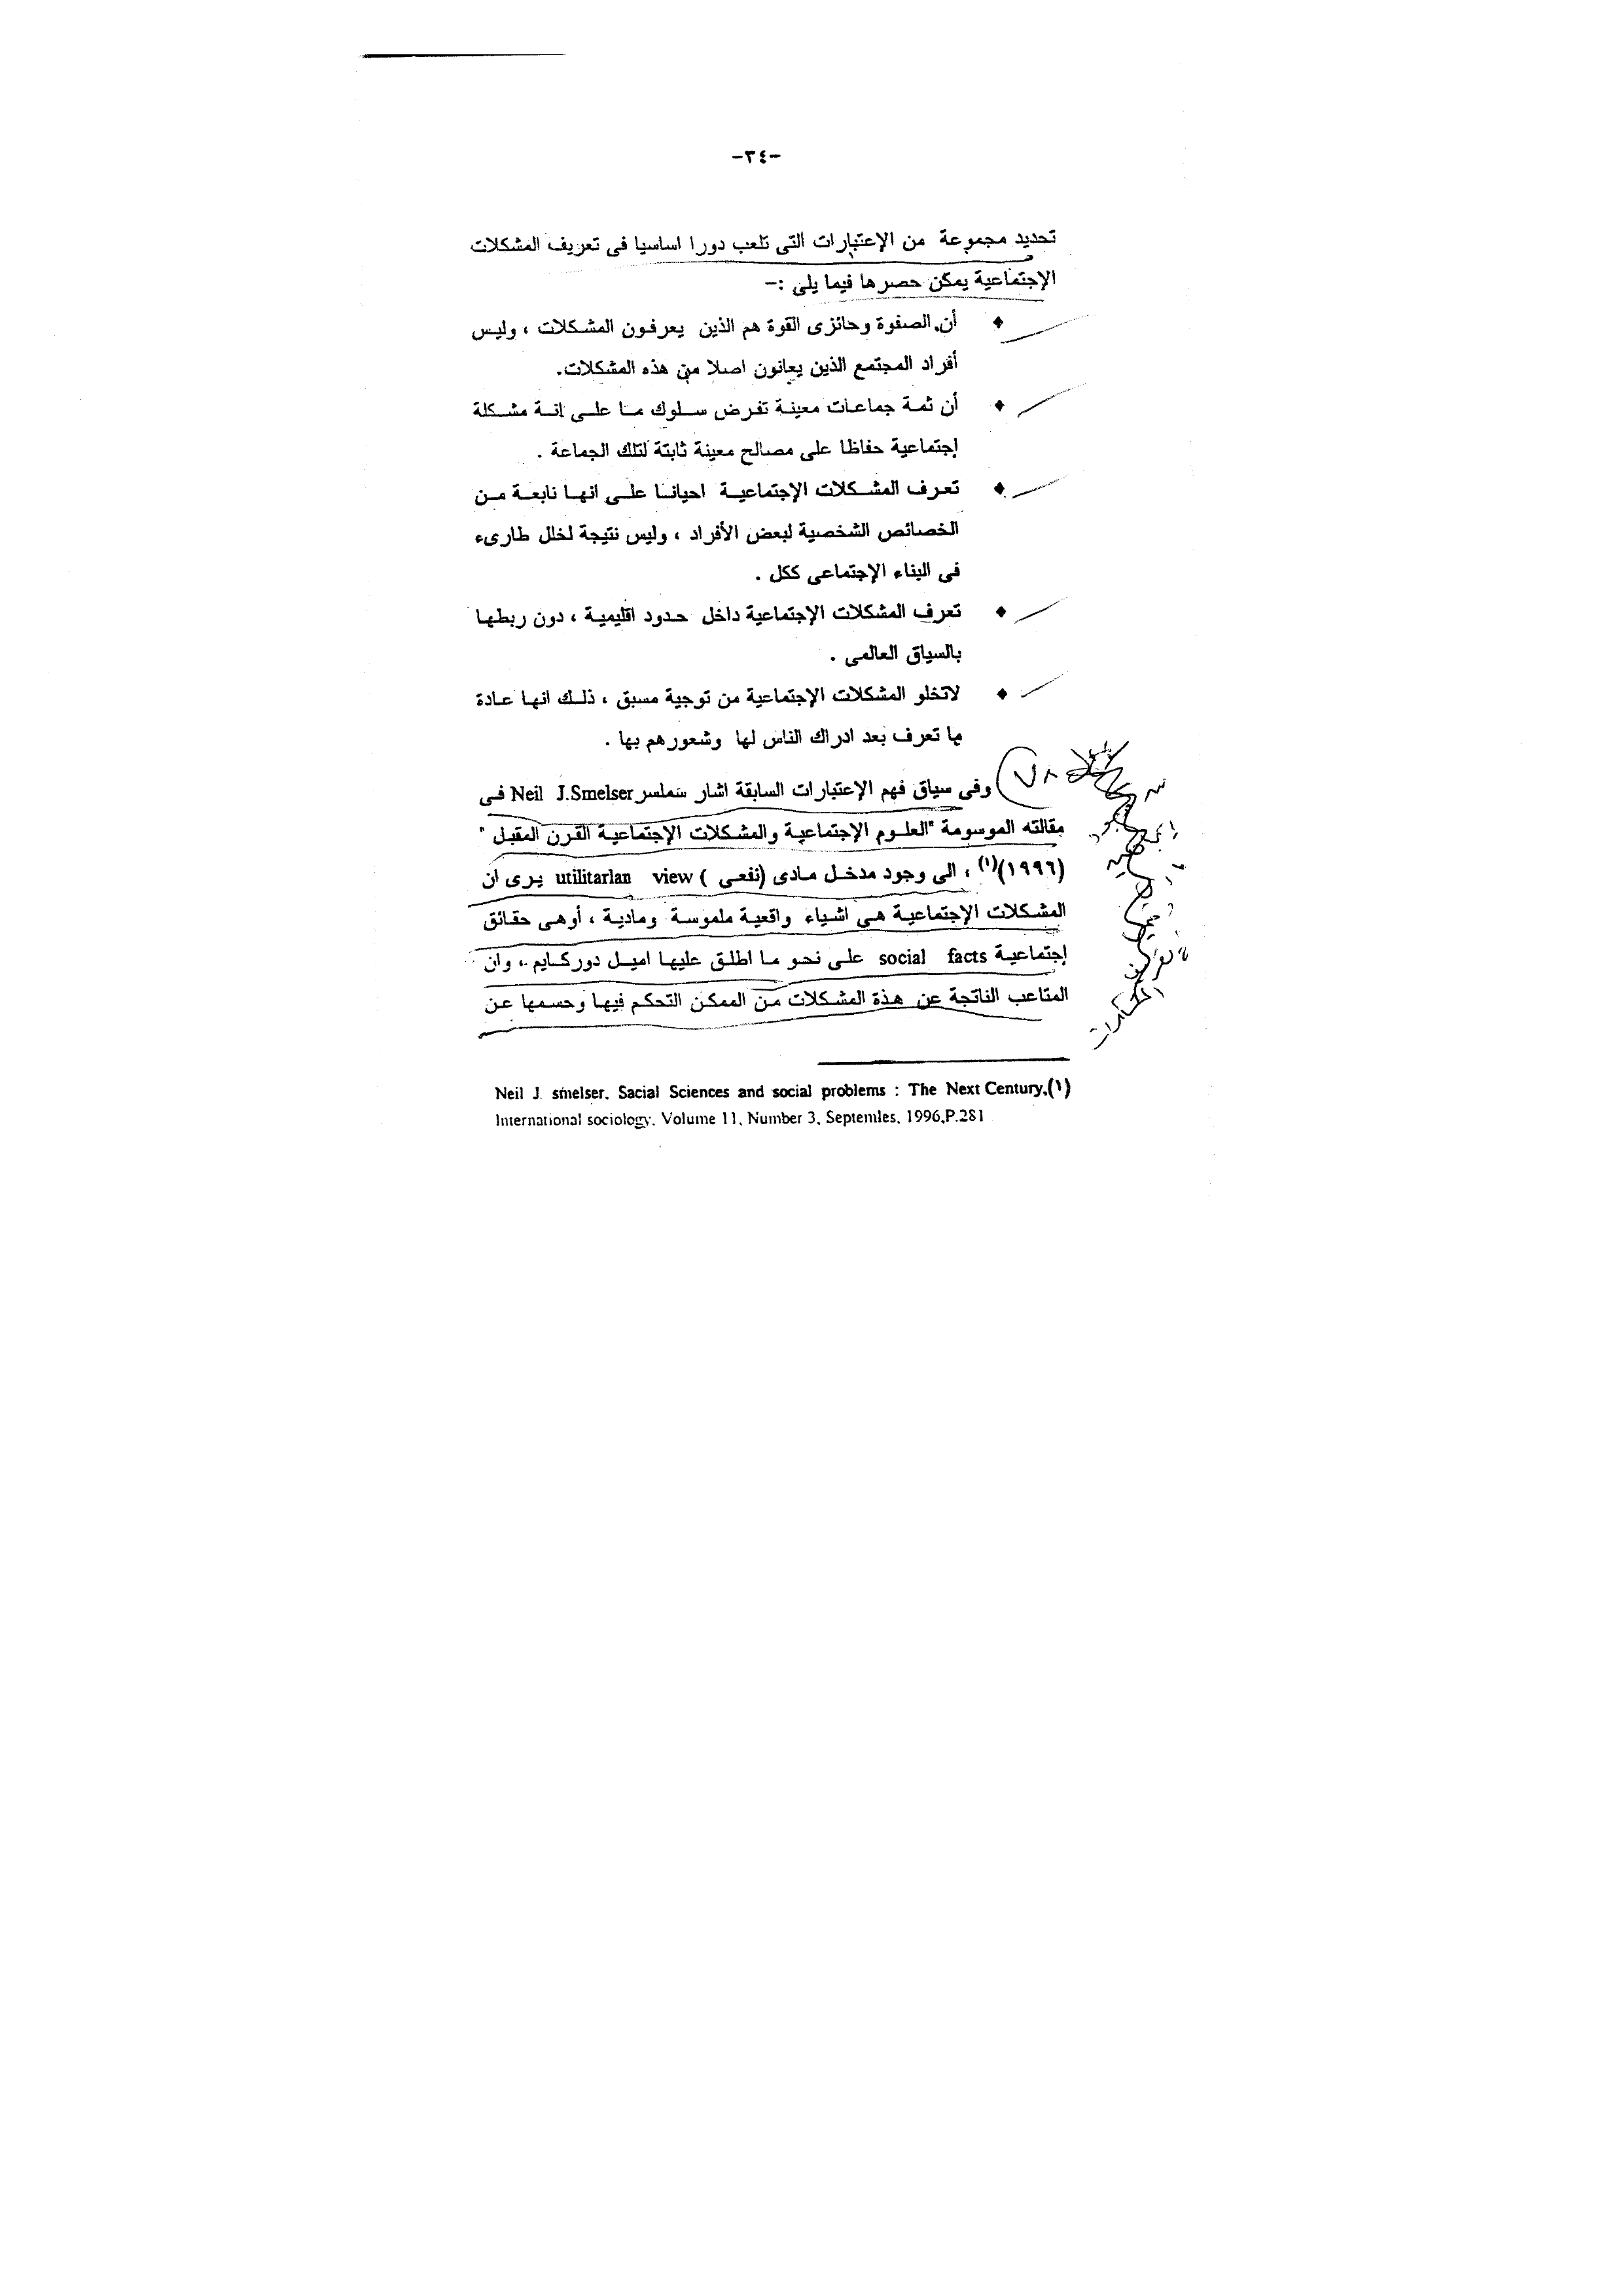 -٣٤-
تحديد مجموعة من الإعتبارات التى تلعب دورا اساسيا فى تعريف المشكلات
الإجتماعية يمكن حصرها فيما يلى :-
♦ أن الصفوة وحائزى القوة هم الذين يعرفون المشكلات ، وليس
أفراد المجتمع الذين يعانون اصلا من هذه المشكلات.
♦ أن ثمة جماعات معينة تفرض سلوك ما على انة مشكلة
إجتماعية حفاظا على مصالح معينة ثابتة لتلك الجماعة .
♦ تعرف المشكلات الإجتماعية احيانا على انها نابعة من
الخصائص الشخصية لبعض الأفراد ، وليس نتيجة لخلل طارىء
فى البناء الإجتماعى ككل .
♦ تعرف المشكلات الإجتماعية داخل حدود اقليمية ، دون ربطها
بالسياق العالمى .
♦ لاتخلو المشكلات الإجتماعية من توجية مسبق ، ذلك انها عادة
ما تعرف بعد ادراك الناس لها وشعورهم بها .
وفى سياق فهم الإعتبارات السابقة اشار سملسر Neil J.Smelser فى
مقالته الموسومة "العلوم الإجتماعية والمشكلات الإجتماعية القرن المقبل "
(١٩٩٦)(١) ، الى وجود مدخل مادى (نفعى ) utilitarlan view يرى ان
المشكلات الإجتماعية هى اشياء واقعية ملموسة ومادية ، أوهى حقائق
إجتماعية social facts على نحو ما اطلق عليها اميل دوركايم ، وان
المتاعب الناتجة عن هذة المشكلات من الممكن التحكم فيها وحسمها عن
Neil J. smelser. Sacial Sciences and social problems : The Next Century,(١)
International sociology. Volume 11, Number 3, Septemles, 1996,P.281